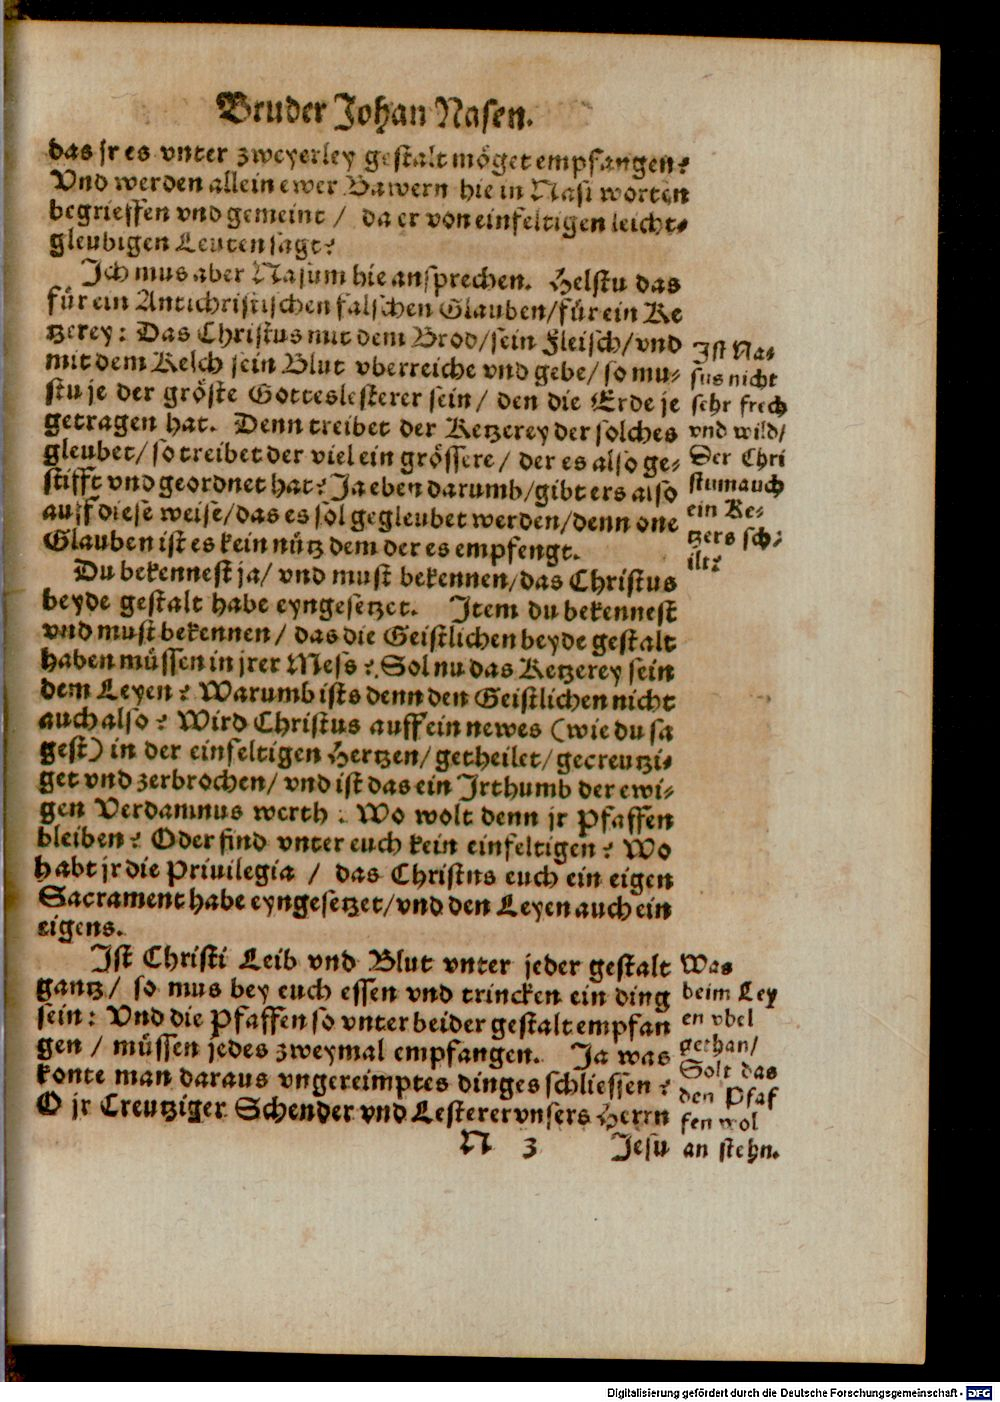 Bruder Johan Nasen.
das jr es vnter zweyerley gestalt möget empfangen?
Vnd werden allein ewer Bawern hie in Nasi worten
begrieffen vnd gemeint / da er von einfeltigen leicht-
gleubigen Leuten sagt?
Ich mus aber Nasum hie ansprechen. Helstu das
für ein Antichristischen falschen Glauben/für ein Ke
tzerey: Das Christus mit dem Brod/sein Fleisch/vnd
mit dem Kelch sein Blut vberreiche vnd gebe/ so mu-
stu je der gröste Gotteslesterer sein/ den die Erde je
getragen hat. Denn treibet der Ketzerey der solches
gleubet/ so treibet der viel ein grössere/ der es also ge-
stifft vnd geordnet hat? Ja eben darumb/gibt ers also
auff diese weise/das es sol gegleubet werden/denn one
Glauben ist es kein nütz dem der es empfengt.
Ist Na-
sus nicht
sehr frech
vnd wild/
Der Chri
stum auch
ein Ke-
tzers sch-
ilt?
Du bekennest ja/ vnd must bekennen/das Christus
beyde gestalt habe eyngesetzet. Item du bekennest
vnd must bekennen/ das die Geistlichen beyde gestalt
haben müssen in jrer Mess? Sol nu das Ketzerey sein
dem Leyen? Warumb ists denn den Geistlichen nicht
auch also? Wird Christus auff ein newes (wie du sa
gest) in der einfeltigen Hertzen/ getheilet/ gecreutzi-
get vnd zerbrochen/ vnd ist das ein Irthumb der ewi-
gen Verdamnus werth: Wo wolt denn jr Pfaffen
bleiben? Oder sind vnter euch kein einfeltigen? Wo
habt jr die Priuilegia / das Christus euch ein eigen
Sacrament habe eyngesetzet/vnd den Leyen auch ein
eigens.
Ist Christi Leib vnd Blut vnter jeder gestalt
gantz/ so mus bey euch essen vnd trincken ein ding
sein: Vnd die Pfaffen so vnter beider gestalt empfan
gen / müssen jedes zweymal empfangen. Ja was
konte man daraus vngereimptes dinges schliessen?
O jr Creutziger Schender vnd Lesterer vnsers Herrn
Was
beim Ley
en vbel
gethan/
Solt das
den Pfaf
fen wol
an stehn.
N 3 Jesu
Digitalisierung gefördert durch die Deutsche Forschungsgemeinschaft - DFG